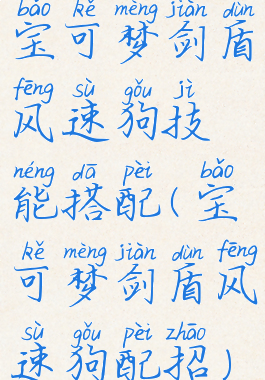 bǎo kě mèng jiàn dùn
宝可梦剑盾
fēng sù gǒu jì
风速狗技
néng dā pèi bǎo
能搭配(宝
kě mèng jiàn dùn fēng
可梦剑盾风
sù gǒu pèi zhāo
速狗配招)